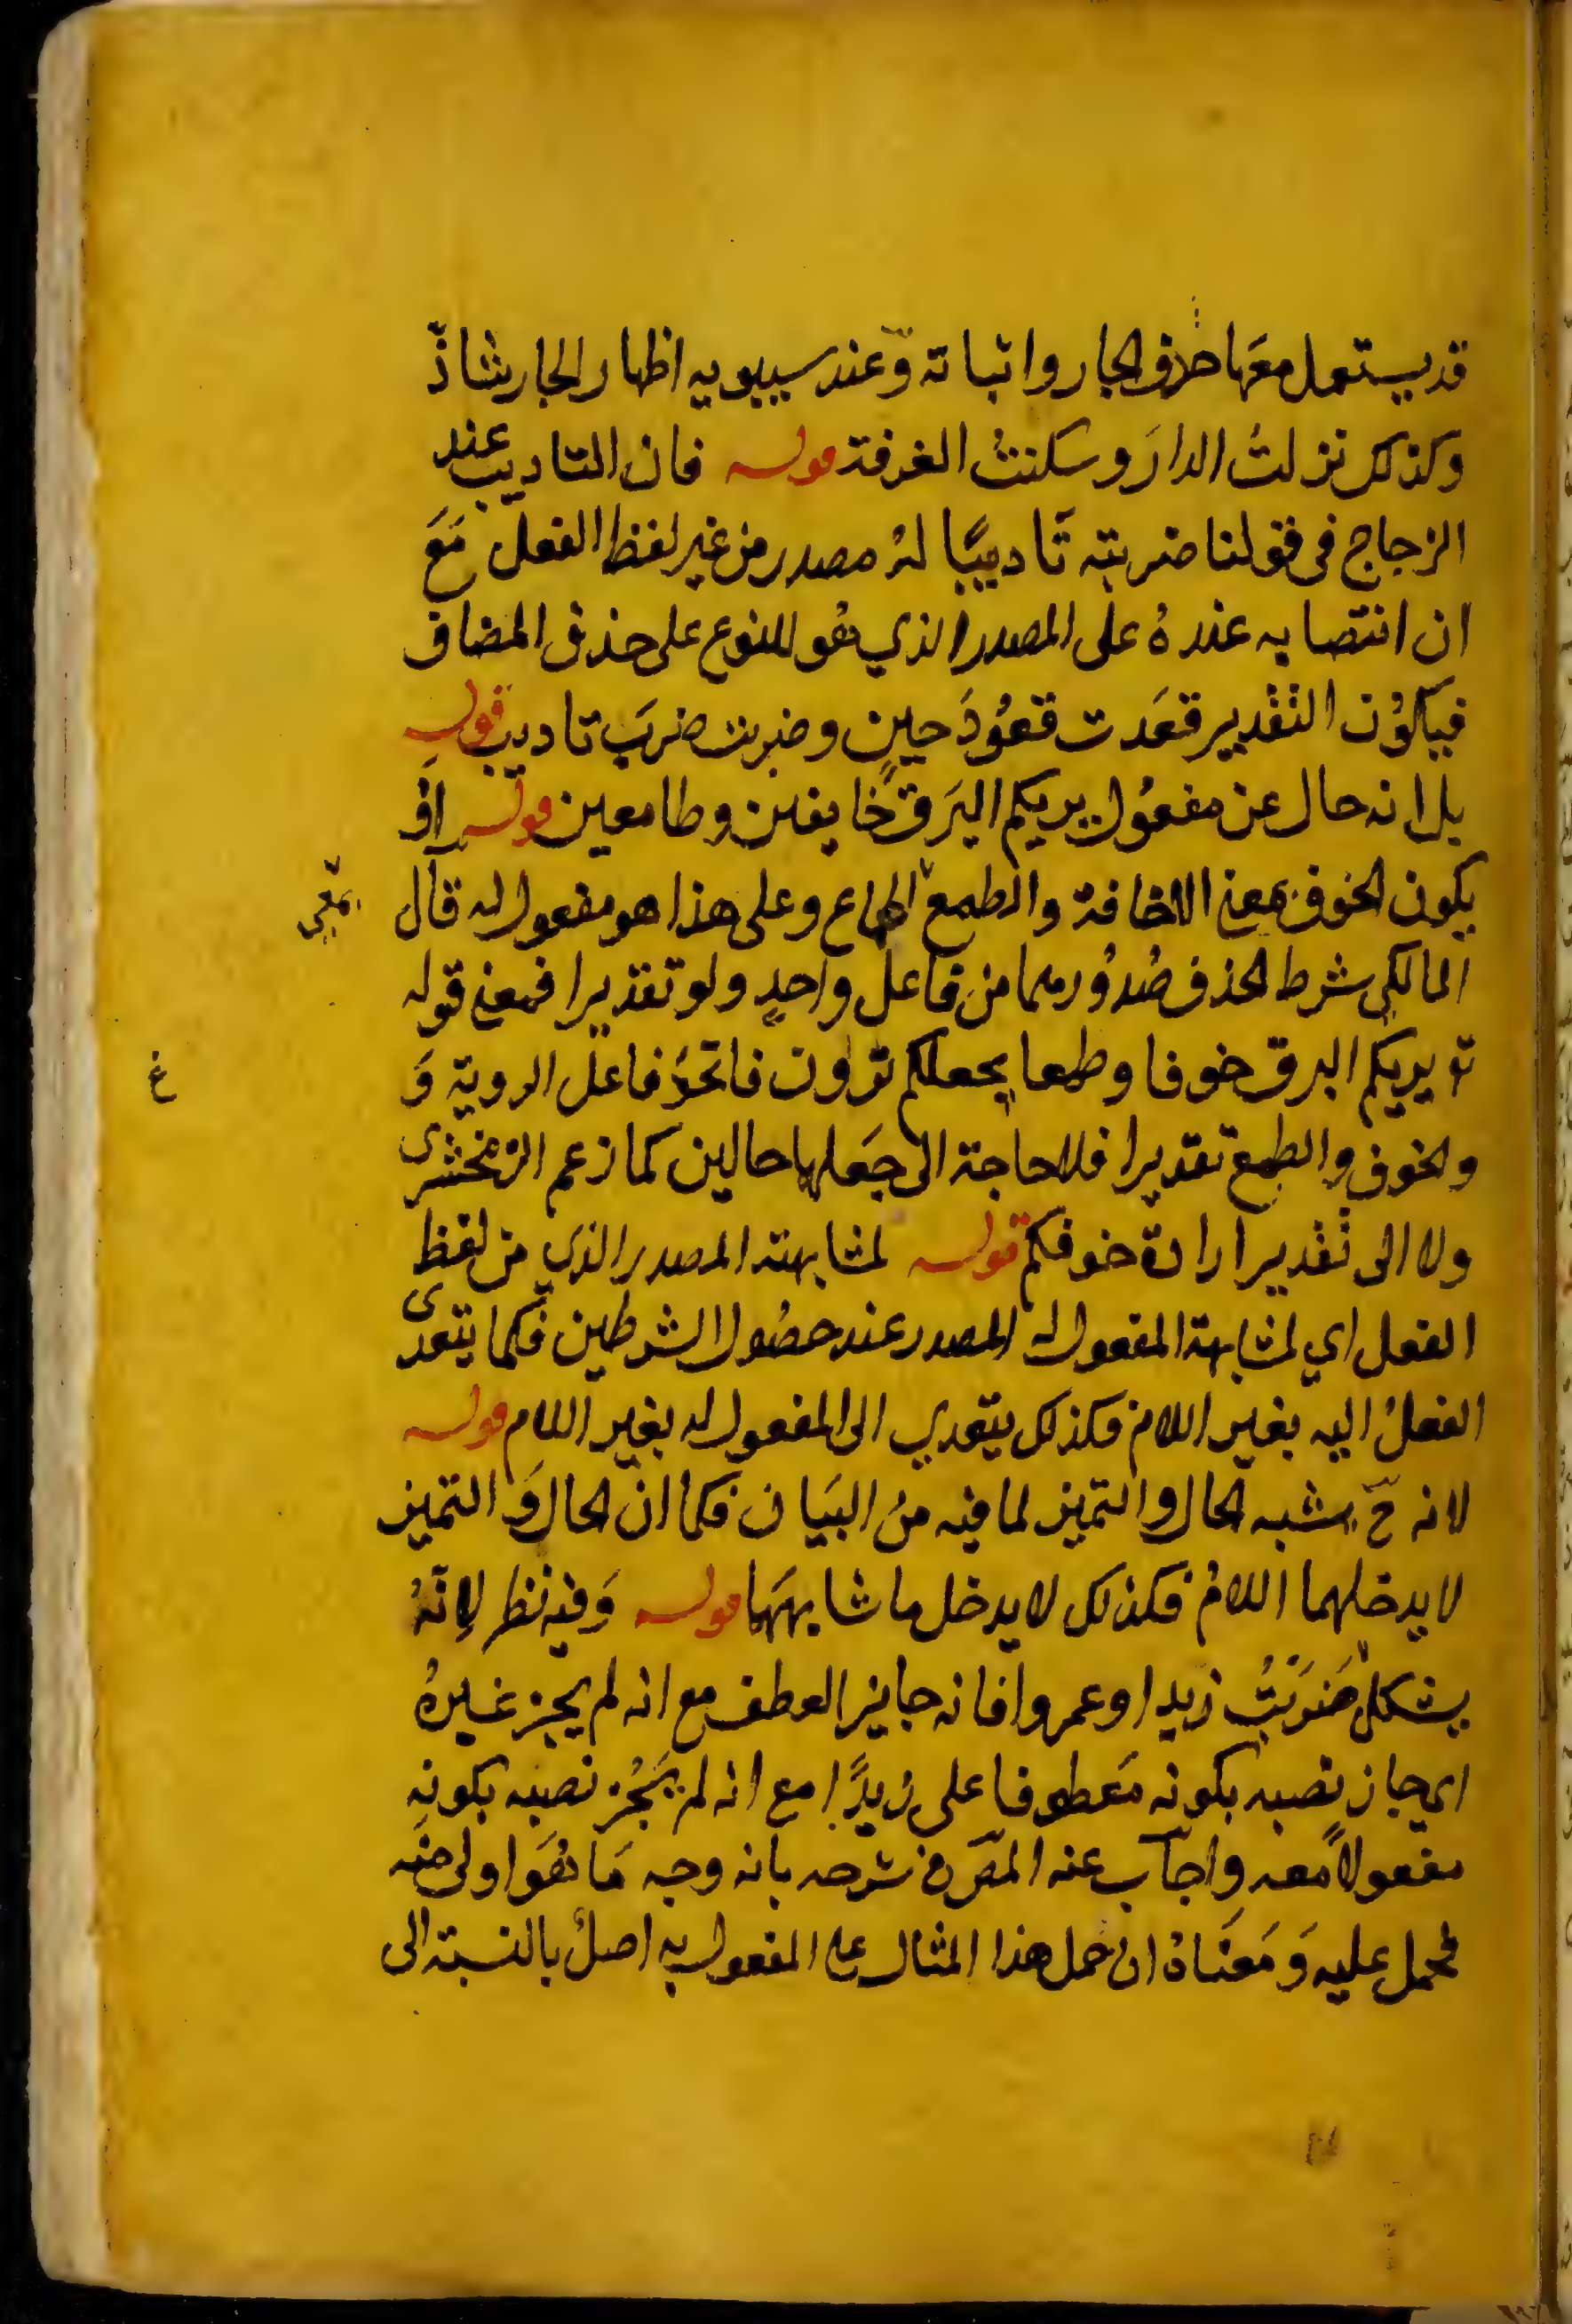 قد يستعمل معها حرف الجار واثباته وعند سيبويه اظهار الجار شاذّ
وكذلك نزلتُ الدارَ وسكنتُ الغرفة قوله فان التاديب عند
الزجاج فى قولنا ضربته تَاديبًا لهُ مصدر من غير لفظ الفعل مَعَ
ان انتصابه عندهُ على المصدر الذي هُو للنوع على حذف المضاف
فيكوُن التقدير قعَدت قعُودَ حينٍ وضربت ضربَ تاديبٍ قوله
بل انه حال عن مفعُول يريكم البَرقَ خايفين وطامعين قوله اَوْ
يكون الخوف بمعنى الاخافة والطمع الاطماع وعلى هذا هو مفعول له قال
بمعنى
المالكي شرط الحذف صُدوُرهما من فاعل واحدٍ ولو تقديرا فمعنى قوله
تع يريكم البرق خوفا وطمعا يجعلكم ترَون فاتحدَ فاعل الروية وَ
غ
والخوف والطمع تقديرا فلا حاجة الى جَعلهما حالين كما زعم الزمخشرى
ولا الى تقدير ارادة خوفكم قوله لمشابهته المصدر الذي من لفظ
الفعل اي لمشابهة المفعول له المصدر عند حصُول الشرطين فكما يتعدى
الفعلُ اليه بغير اللام فكذلك يتعدي الى المفعول له بغير اللام قوله
لانه ح يشبه الحال والتميز لما فيه منَ البيَان فكما ان الحال وَالتميز
لا يدخلهما اللامُ فكذلك لا يدخل ما شابههَما قوله وَفيه نظر لاِنّهُ
يشكل ضَرَبْتُ زيدا وعمروا فانه جايز العطف مع انه لم يجز غيرهُ
اي جاز نصبه بكونه مَعطوفا على زيدًا مع انه لم يَجُز نصبه بكونهِ
مفعولاً معه واجاب عنه المصَ فى شرحه بانه وجه مَا هُوَ اولى منه
فحمل عليه وَمَعنَاهُ ان حمل هذا المثال على المفعول به اصلُ بالنسبة الى